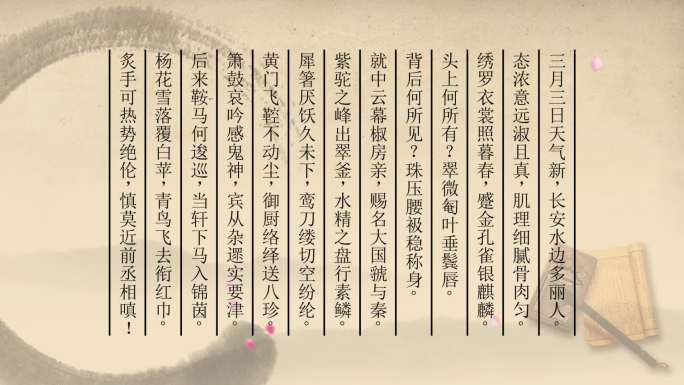 三月三日天气新，长安水边多丽人。
态浓意远淑且真，肌理细腻骨肉匀。
绣罗衣裳照暮春，蹙金孔雀银麒麟。
头上何所有？翠微㔩叶垂鬓唇。
背后何所见？珠压腰衱稳称身。
就中云幕椒房亲，赐名大国虢与秦。
紫驼之峰出翠釜，水精之盘行素鳞。
犀箸厌饫久未下，鸾刀缕切空纷纶。
黄门飞鞚不动尘，御厨络绎送八珍。
箫鼓哀吟感鬼神，宾从杂遝实要津。
后来鞍马何逡巡，当轩下马入锦茵。
杨花雪落覆白苹，青鸟飞去衔红巾。
炙手可热势绝伦，慎莫近前丞相嗔！